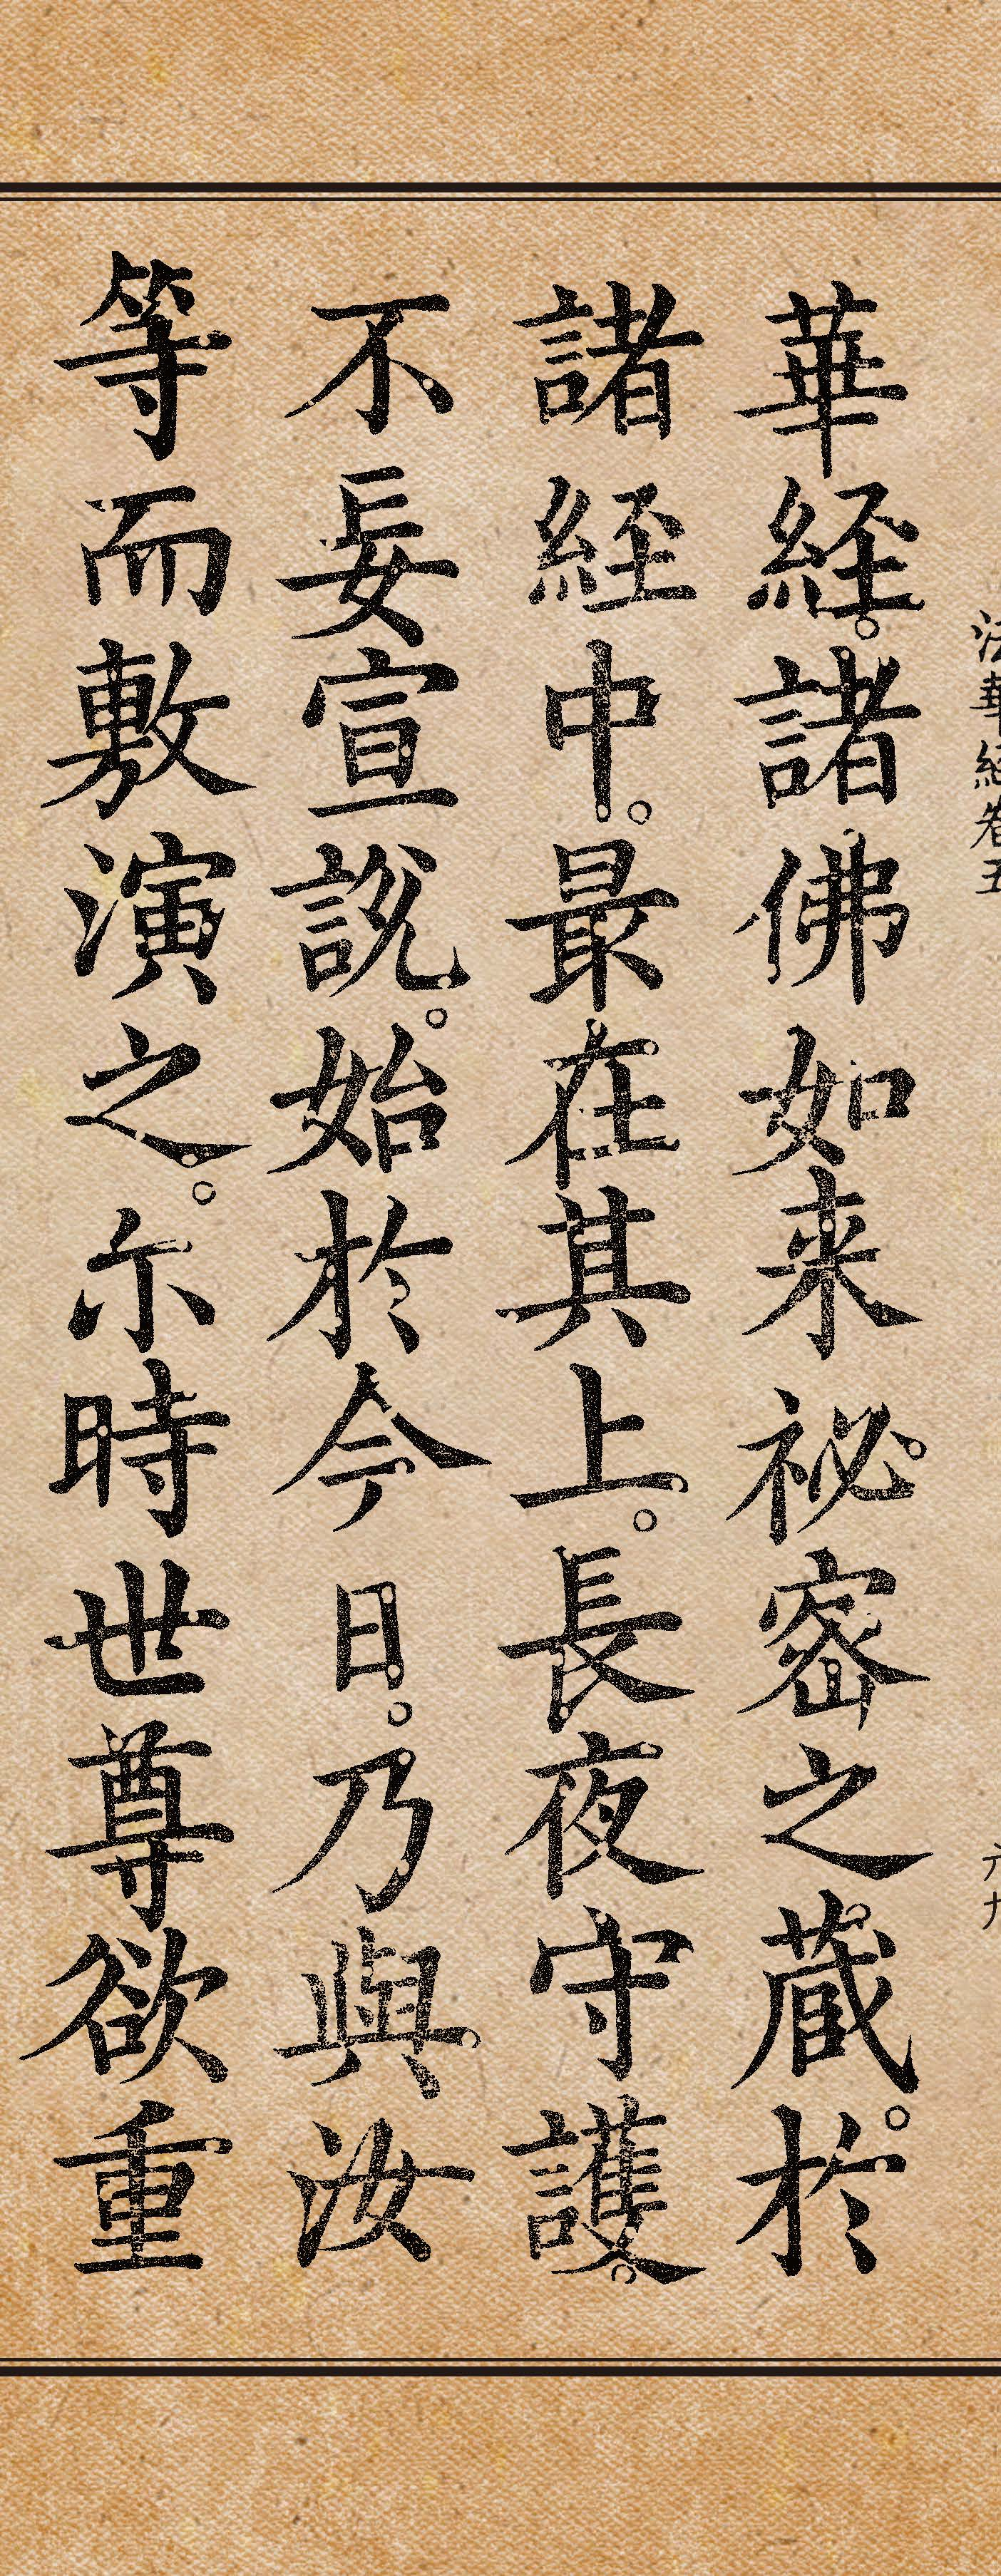 法華経卷五
六九
華経。諸佛如来祕密之蔵。於
諸経中。最在其上。長夜守護。
不妄宣説。始於今日。乃與汝
等而敷演之。尒時世尊欲重